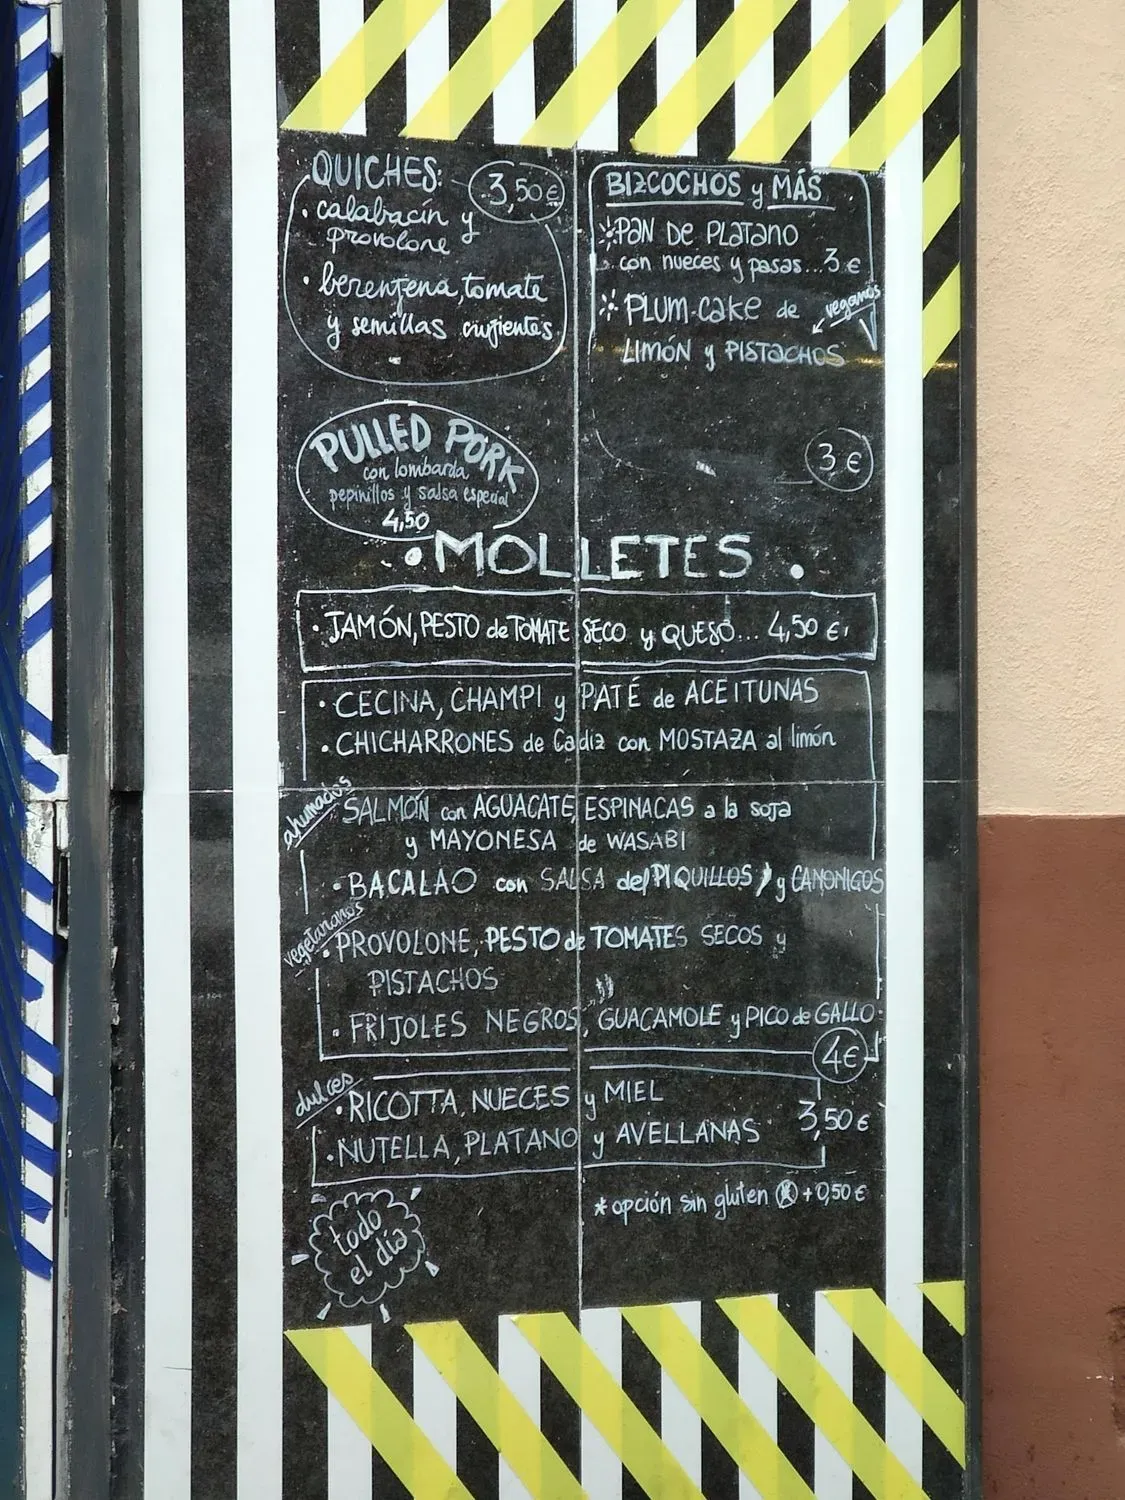 QUICHES: 3,50€
• calabacín y
provolone
• berenjena, tomate
y semillas crujientes
BIZCOCHOS y MÁS
PAN DE PLATANO
con nueces y pasas...3 €
PLUM-CAKE de
veganos
LIMÓN y PISTACHOS
3 €
PULLED PORK
con lombarda,
pepinillos y salsa especial
4,50
• MOLLETES •
• JAMÓN, PESTO de TOMATE SECO y QUESO... 4,50 €
• CECINA, CHAMPI y PATÉ de ACEITUNAS
• CHICHARRONES de Cadiz con MOSTAZA al limón
ahumados
SALMÓN con AGUACATE, ESPINACAS a la soja
y MAYONESA de WASABI
• BACALAO con SALSA del PIQUILLOS y CANONIGOS
vegetarianos
• PROVOLONE, PESTO de TOMATES SECOS y
PISTACHOS
• FRIJOLES NEGROS, GUACAMOLE y PICO de GALLO
4€
dulces
• RICOTTA, NUECES y MIEL
3,50€
• NUTELLA, PLATANO y AVELLANAS
* opción sin gluten + 0,50 €
todo
el día